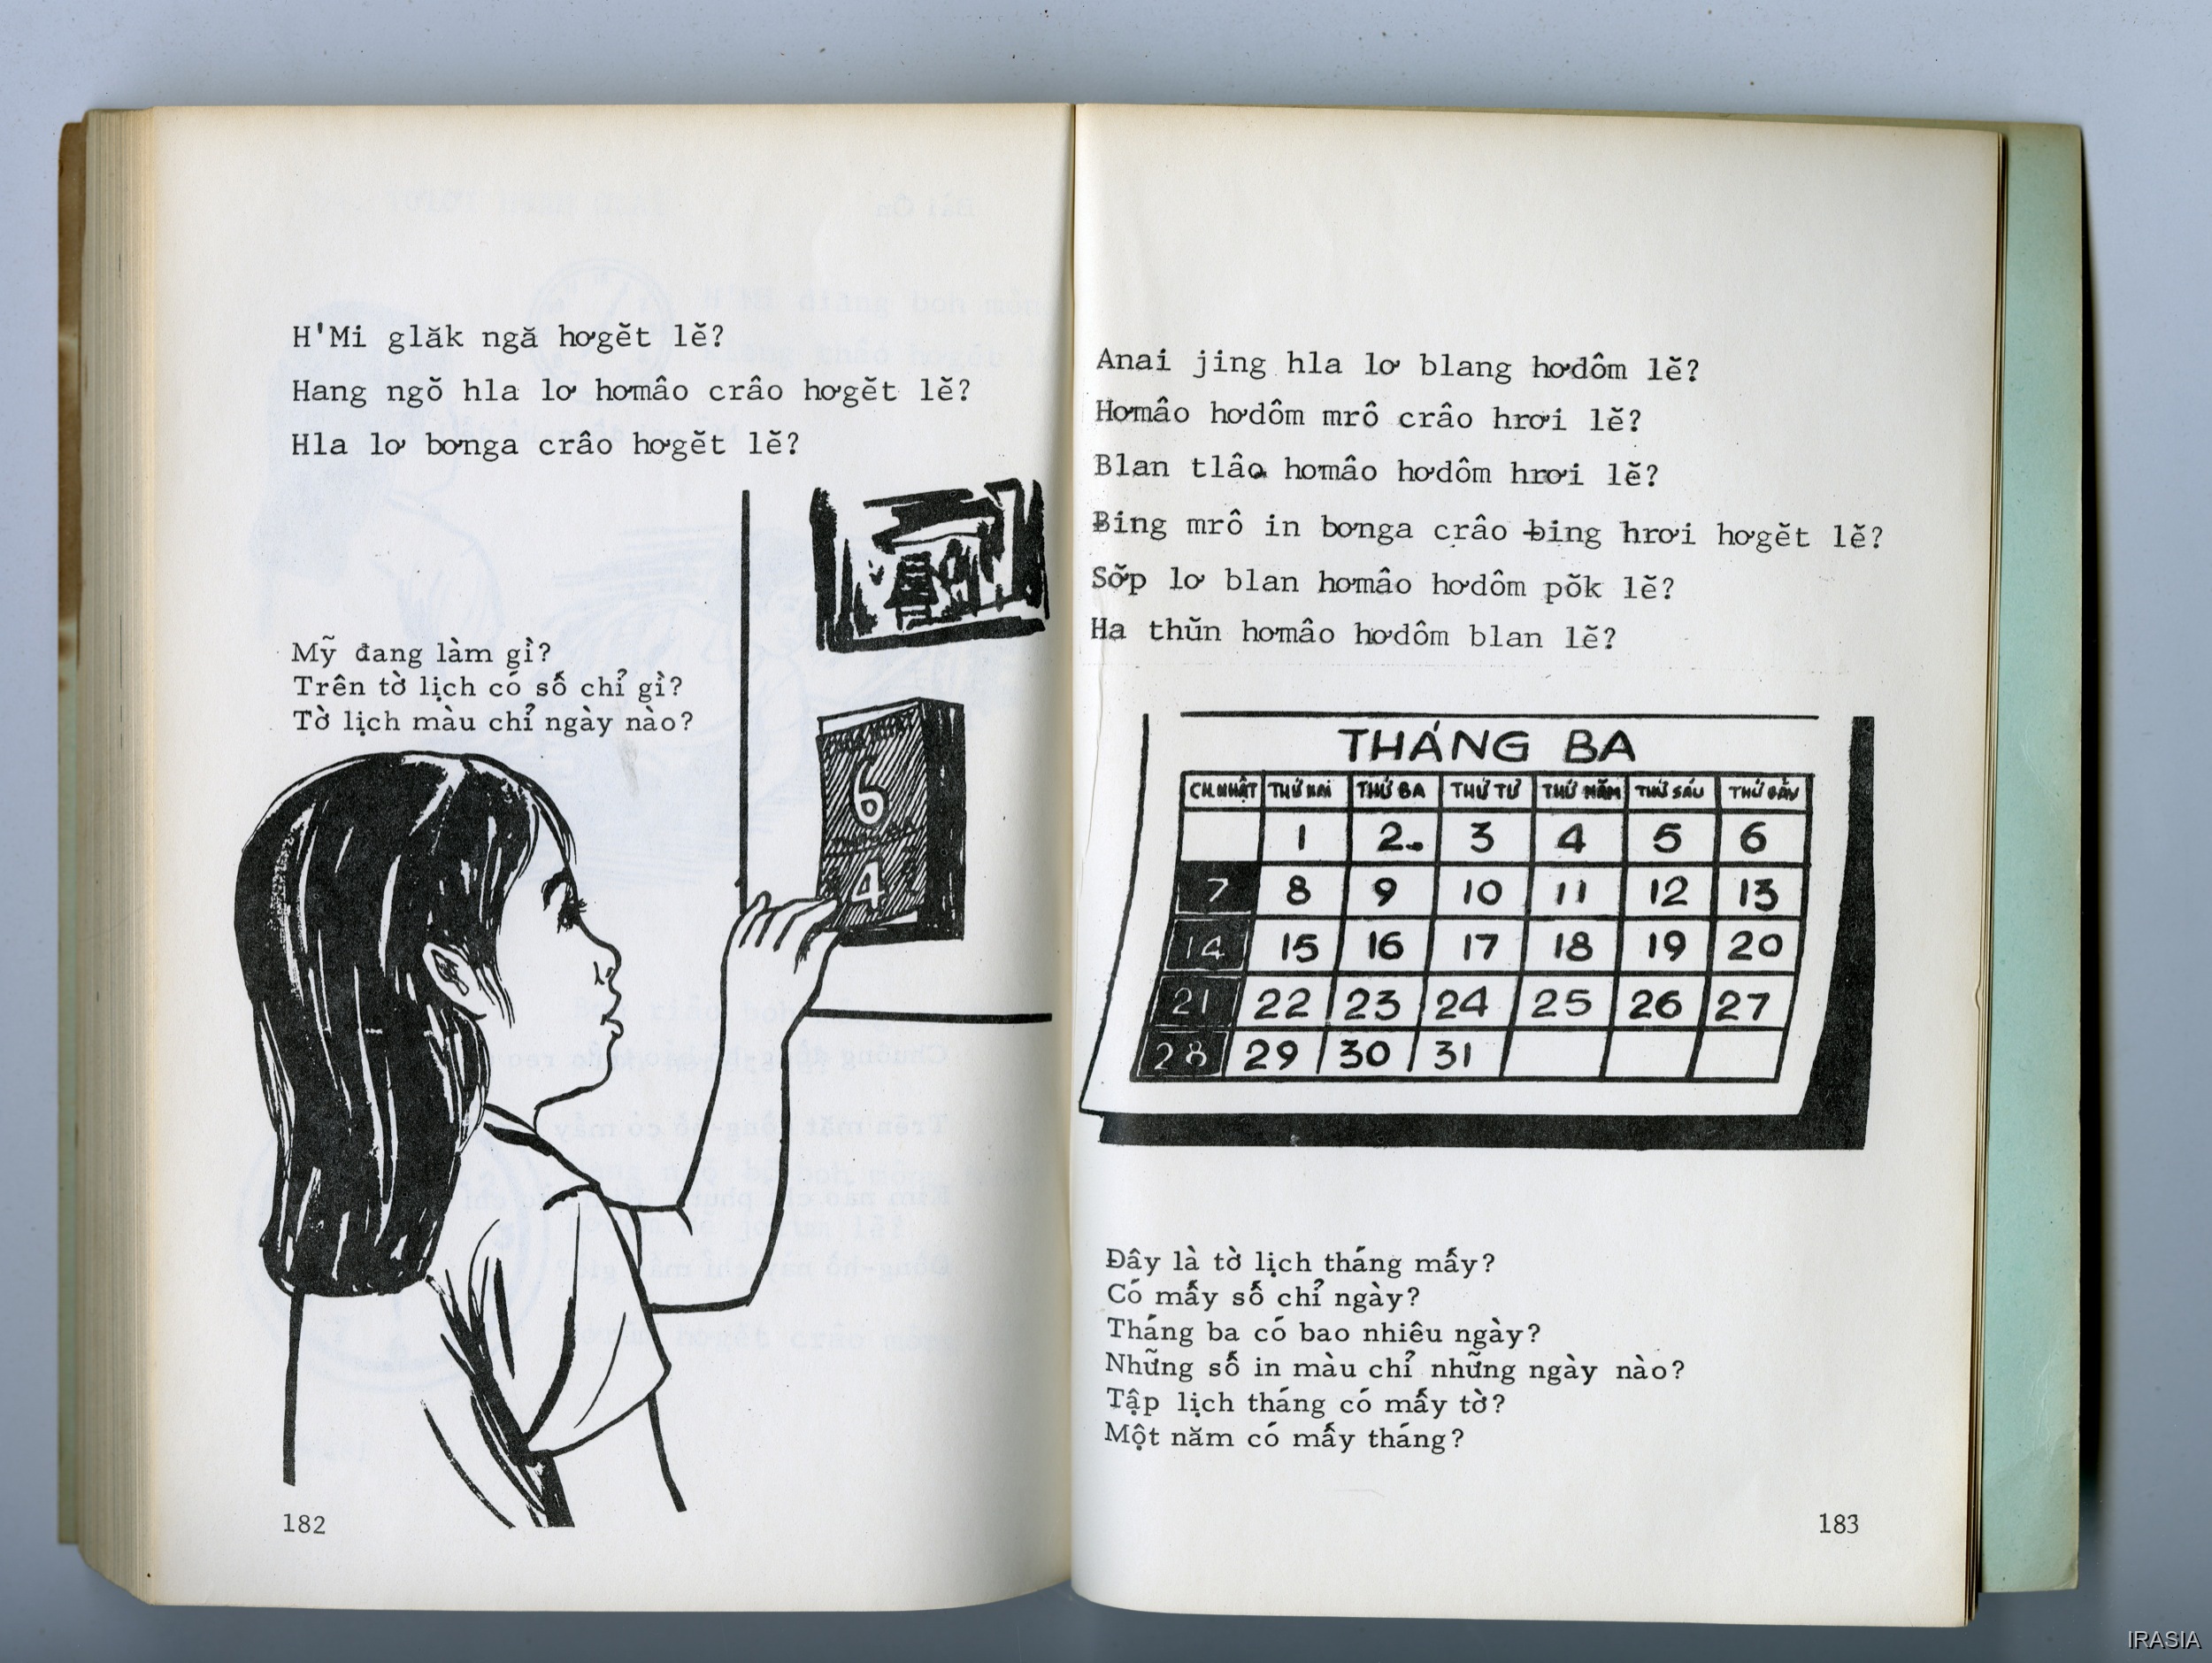 H'Mi glăk ngă hơgĕt lĕ?
Hang ngŏ hla lơ hơmâo crâo hơgĕt lĕ?
Hla lơ bơnga crâo hơgĕt lĕ?
Mỹ đang làm gì?
Trên tờ lịch có số chỉ gì?
Tờ lịch màu chỉ ngày nào?
6
4
182
Anai jing hla lơ blang hơdôm lĕ?
Hơmâo hơdôm mrô crâo hrơi lĕ?
Blan tlâo hơmâo hơdôm hrơi lĕ?
Ƀing mrô in bơnga crâo ƀing hrơi hơgĕt lĕ?
Sơ̆p lơ blan hơmâo hơdôm pŏk lĕ?
Ha thŭn hơmâo hơdôm blan lĕ?
THÁNG BA
CH.NHẬT THỨ HAI THỨ BA THỨ TƯ THỨ NĂM THỨ SÁU THỨ BẢY
1 2 3 4 5 6
7 8 9 10 11 12 13
14 15 16 17 18 19 20
21 22 23 24 25 26 27
28 29 30 31
Đây là tờ lịch tháng mấy?
Có mấy số chỉ ngày?
Tháng ba có bao nhiêu ngày?
Những số in màu chỉ những ngày nào?
Tập lịch tháng có mấy tờ?
Một năm có mấy tháng?
183
IRASIA